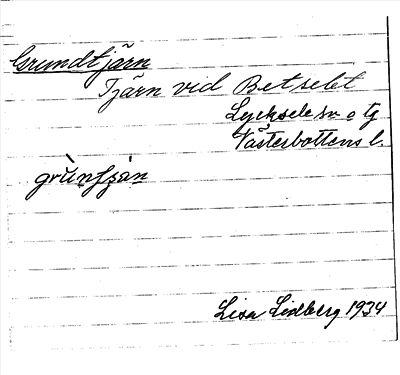 Grundtjärn
Tjärn vid Betsele
Lycksele sn o tg
Västerbottens l.
grùnſʃàn
Lisa Lidberg 1934